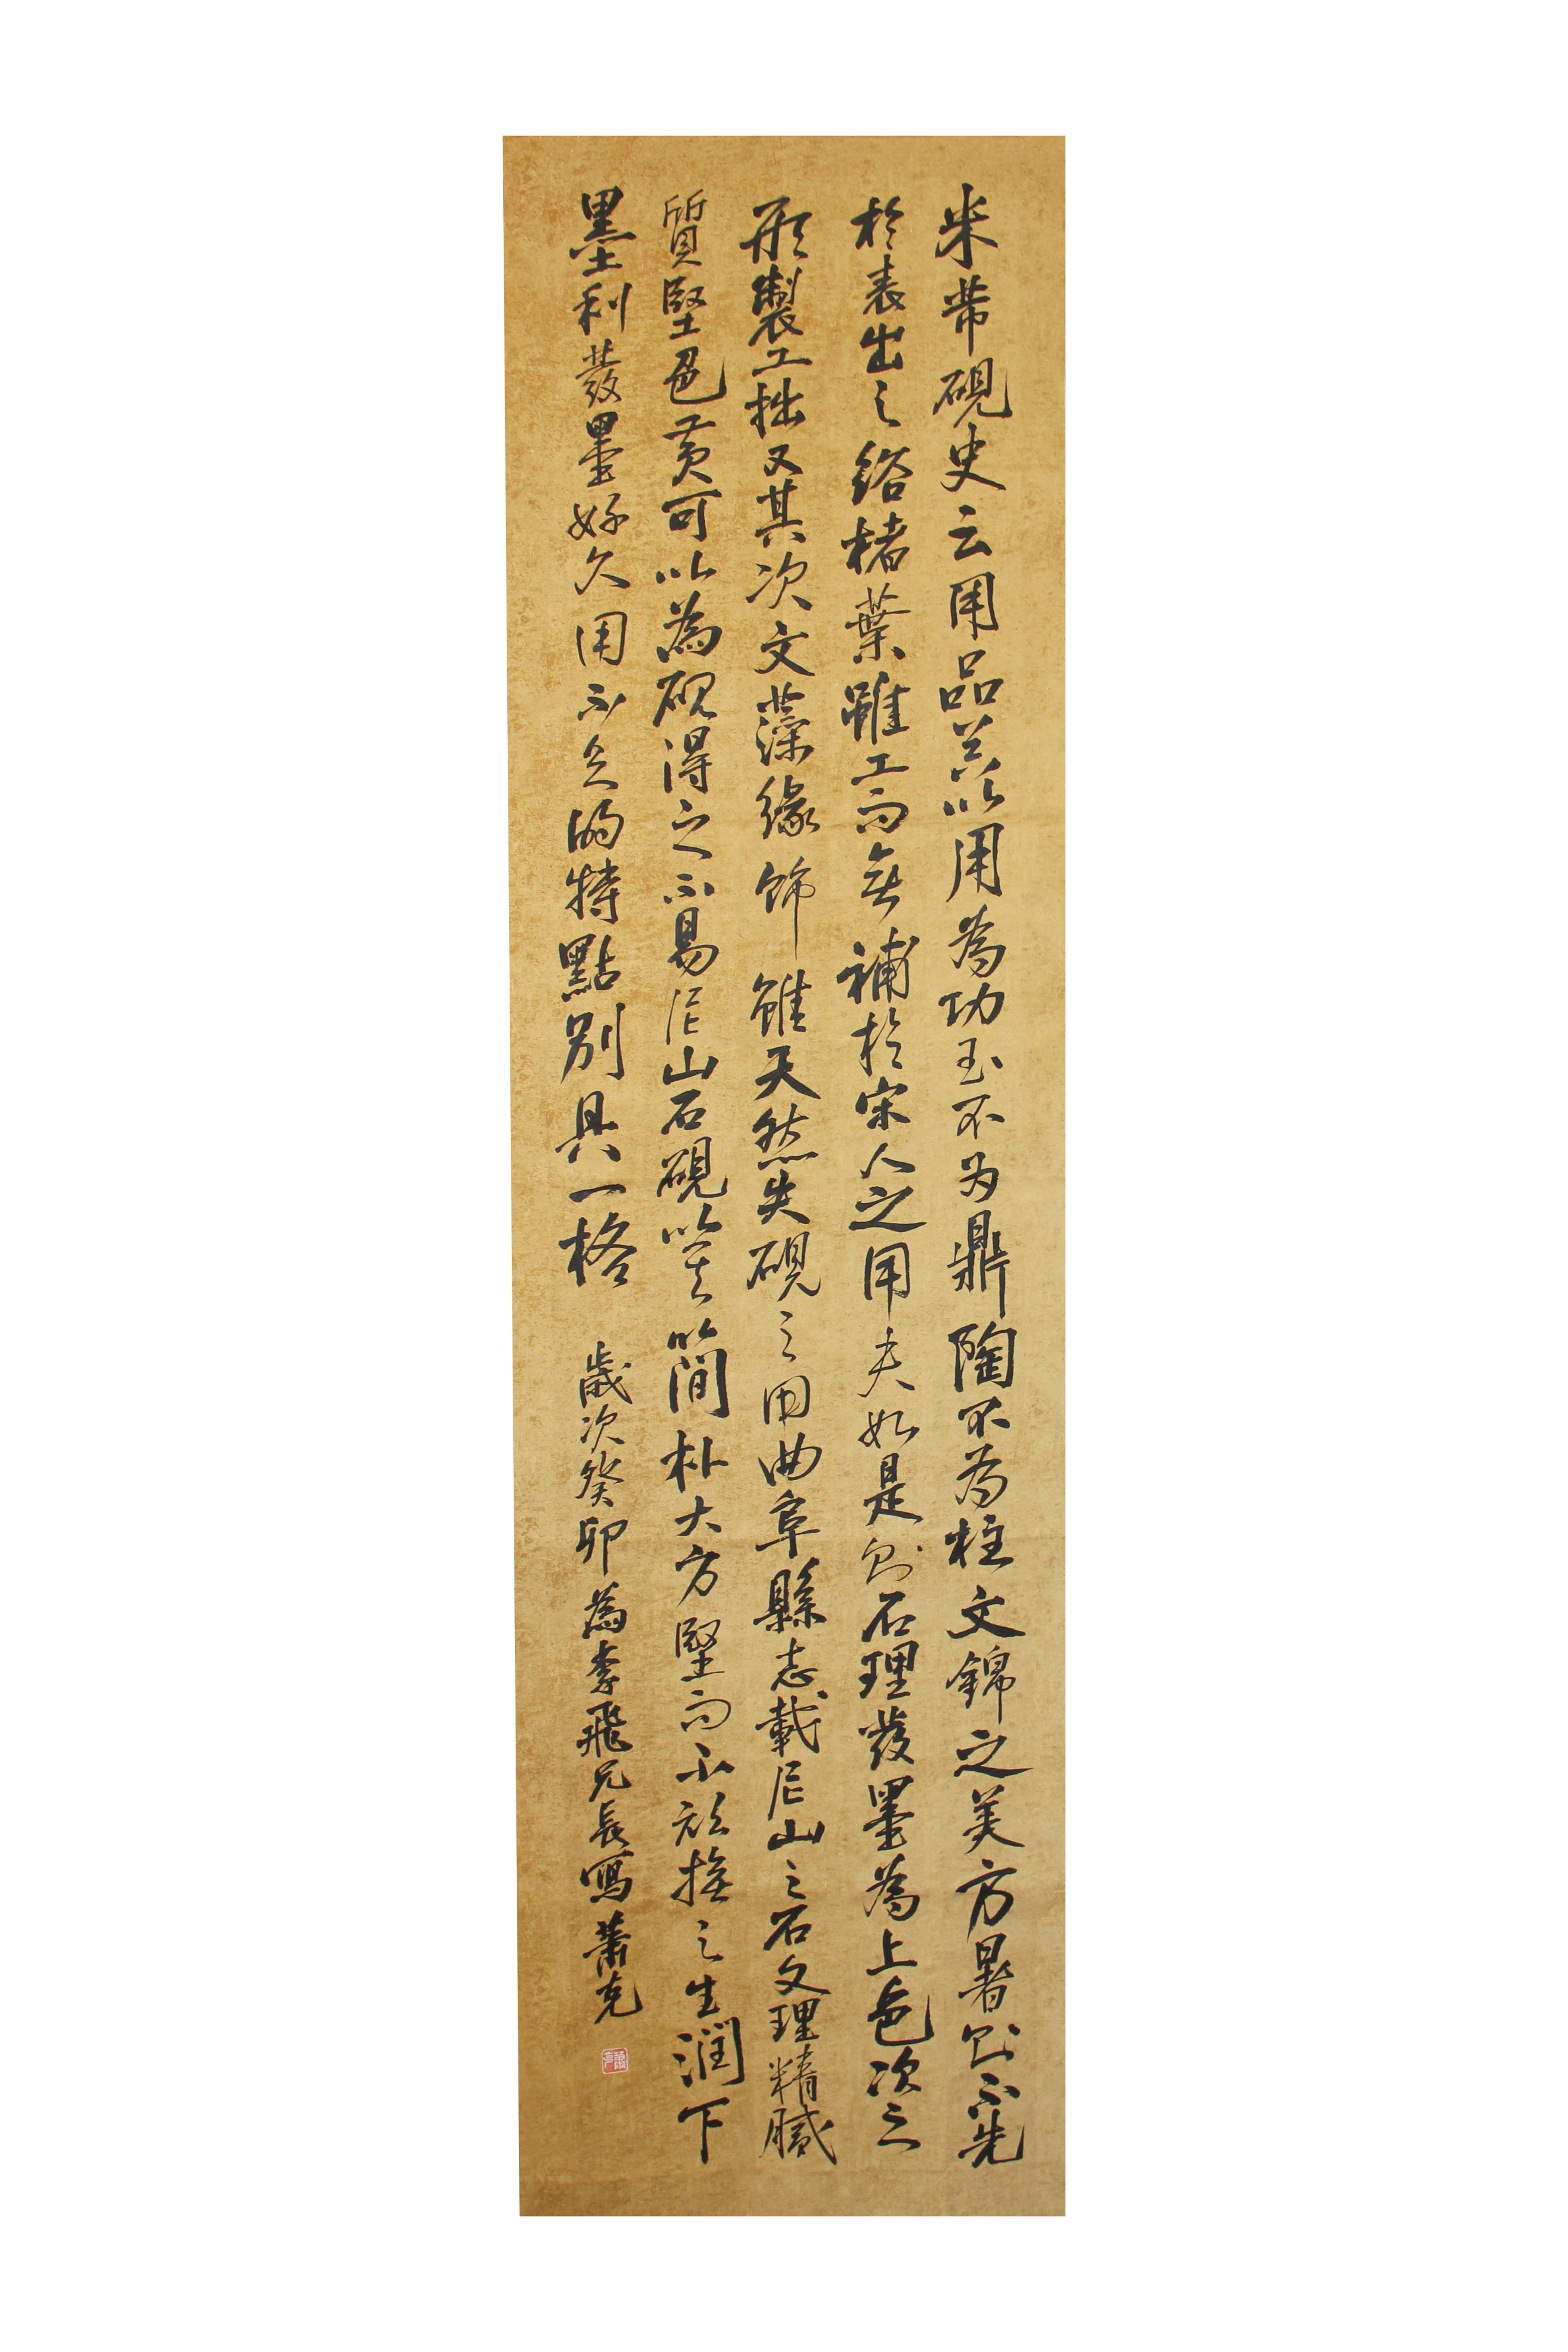 米芾硯史云用品器以用為功玉不为鼎陶不為柱文錦之美方暑則不先
於表出之綌楮葉雖工而無補於宋人之用夫如是則石理發墨為上色次之
形製工拙又其次文藻緣飾雖天然失硯之用曲阜縣志載尼山之石文理精膩
質堅色黃可以為硯得之不易尼山石硯以其簡朴大方堅而不頑撫之生潤下
墨利發墨好久用不乏的特點別具一格 歲次癸卯為李飛兄長寫蕭克